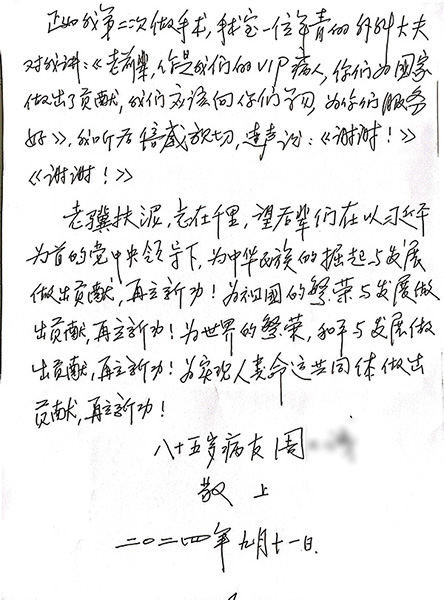 正如我第二次做手术,手术室一位年青的外科大夫
对我讲:《老前辈,你是我们的VIP病人,你们为国家
做出了贡献,我们应该向你们学习,为你们服务
好》,我听后倍感亲切,连声说:《谢谢!》
《谢谢!》
老骥扶泥,志在千里,望后辈们在以习近平
为首的党中央领导下,为中华民族的掘起与发展
做出贡献,再立新功!为祖国的繁荣与发展做
出贡献,再立新功!为世界的繁荣,和平与发展做
出贡献,再立新功!为实现人类命运共同体做出
贡献,再立新功!
八十五岁病友周
敬上
二〇二四年九月十一日.